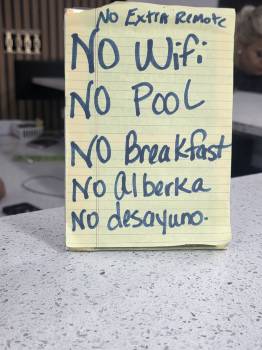 No Extra Remote
No Wifi
No Pool
No Breakfast
No alberka
No desayuno.